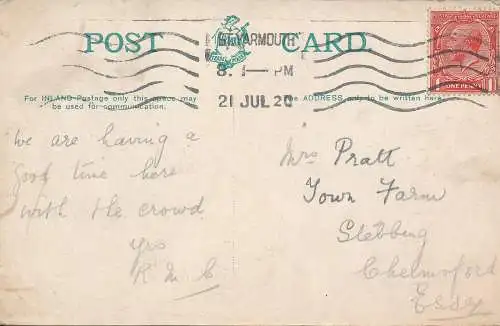 POST CARD
GT. YARMOUTH
PM
21 JUL 20
ONE PENNY
For INLAND Postage only this space may
be used for communication.
The ADDRESS only to be written here.
We are having a
good time here
with the crowd
yrs
R M C
Mrs Pratt
Town Farm
Stebbing
Chelmsford
Essex